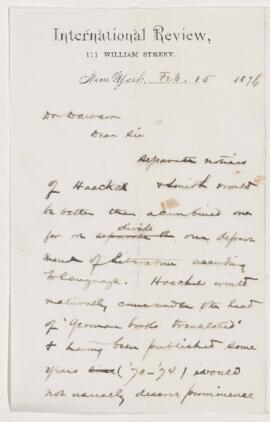 International Review,
111 WILLIAM STREET.
New York, Feb. 15 1876
Dr. Dawson
Dear Sir
Separate notices
of Haeckel & Smith would
be better than a combined one
divide
for we separate the our depart
ment of Literature according
to language. Haeckel would
naturally come under the head
of "German books translated"
& having been published some
years since ('70-'74) would
not usually deserve prominence